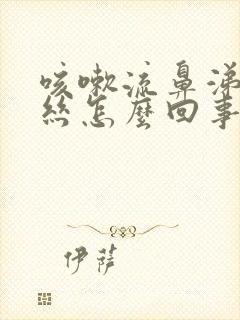 咳嗽流鼻涕
絲怎麼回事
伊薩